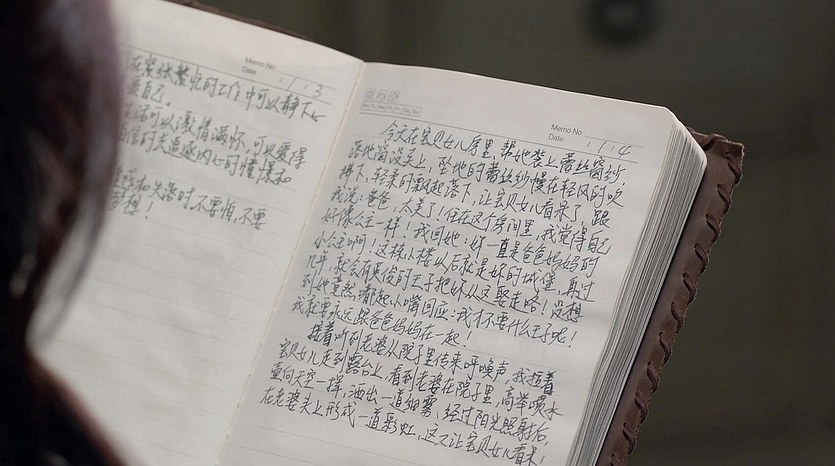 Memo No.
Date 1 / 13
在緊張繁忙的工作中可以靜下心
自己。
生活可以激情滿懷,可以愛得
內心的憧憬和
和失落時不要怕,不要
夢想!
Memo No.
Date 1 / 14
今天在宝贝女儿房里,幫她裝上蕾丝窗紗
落地窗没关上,坠地的蕾丝紗幔在轻风的吹
拂下,轻柔的飘起落下,让宝贝女儿看呆了,跟
我说:爸爸,太美了!住在这个房间里,我觉得自己
好像公主一样!我回她:妳一直是爸爸妈妈的
小公主啊!这栋小楼以后就是妳的城堡,再过
几年,就会有英俊的王子把妳从这娶走咯!没想
到她竟然都起小嘴回应:我才不要什么王子呢!
我就要永远跟爸爸妈妈在一起!
接着听到老婆从院子里传来呼唤声,我拉着
宝贝女儿走到露台上,看到老婆在院子里,高举喷水
壶向天空一样,洒出一道细雾,经过阳光照射后,
在老婆头上形成一道彩虹,这又让宝贝女儿看呆!